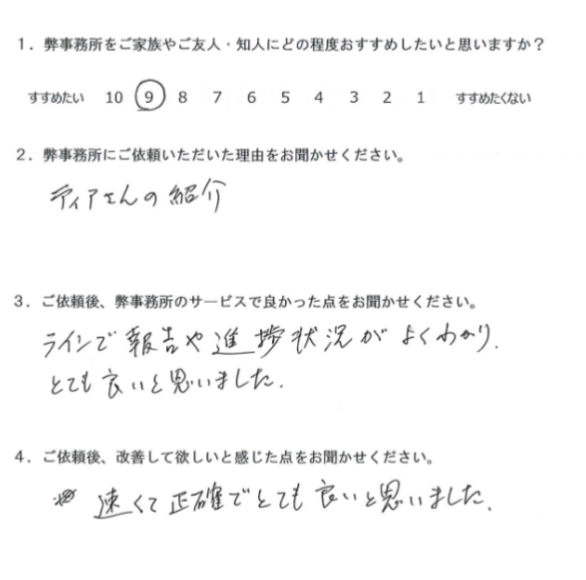 1．弊事務所をご家族やご友人・知人にどの程度おすすめしたいと思いますか？
すすめたい 10 9 8 7 6 5 4 3 2 1 すすめたくない
2．弊事務所にご依頼いただいた理由をお聞かせください。
ティアさんの紹介
3．ご依頼後、弊事務所のサービスで良かった点をお聞かせください。
ラインで報告や進捗状況がよくわかり、
とても良いと思いました.
4．ご依頼後、改善して欲しいと感じた点をお聞かせください。
速くて正確でとても良いと思いました.